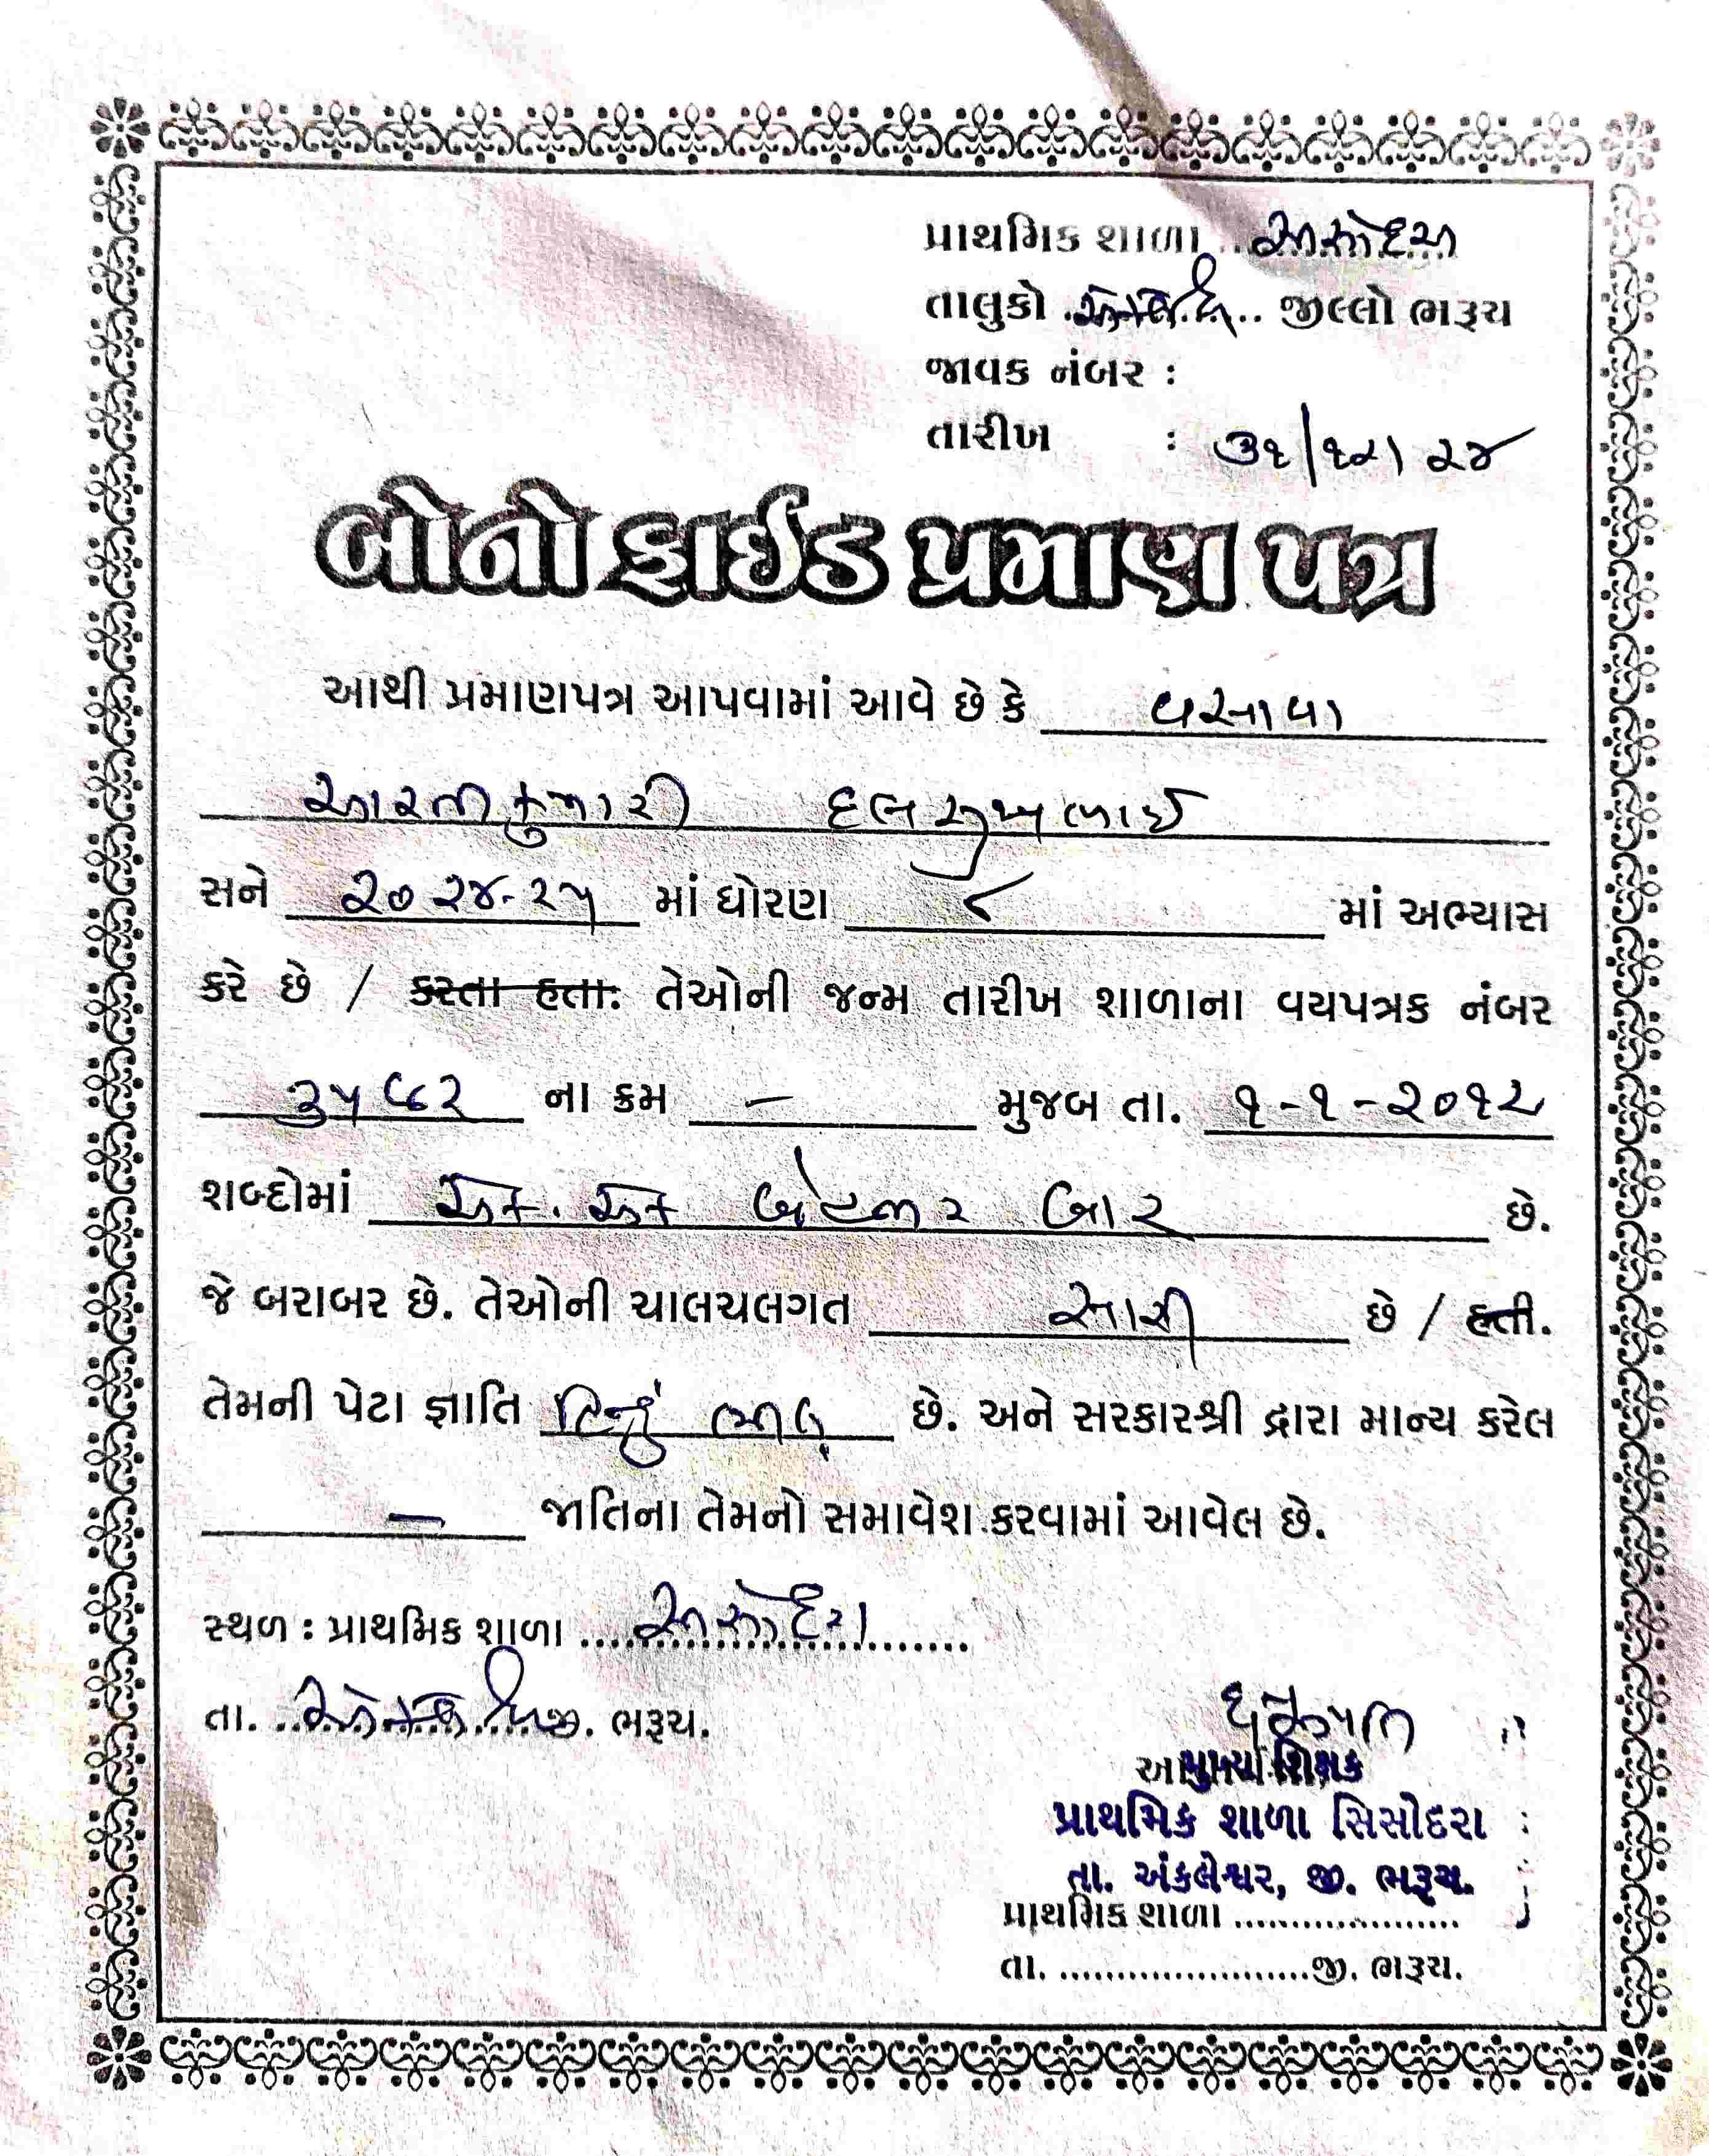 પ્રાથમિક શાળા
તાલુકો જીલ્લો ભરૂચ
જાવક નંબર :
તારીખ : ૩૧/૧૨/૨૪
બોનોફાઈડ પ્રમાણ પત્ર
આથી પ્રમાણપત્ર આપવામાં આવે છે કે વસાવા
આરતીકુમારી દલસુખભાઈ
સને ૨૦૨૪-૨૫ માં ધોરણ ૮ માં અભ્યાસ
કરે છે / કરતા હતા. તેઓની જન્મ તારીખ શાળાના વયપત્રક નંબર
૩૫૯૨ ના ક્રમ — મુજબ તા. ૧-૧-૨૦૧૨
શબ્દોમાં એક. એક બે હજાર બાર છે.
જે બરાબર છે. તેઓની ચાલચલગત સારી છે / હતી.
તેમની પેટા જ્ઞાતિ હિન્દુ ભીલ છે. અને સરકારશ્રી દ્રારા માન્ય કરેલ
— જાતિના તેમનો સમાવેશ કરવામાં આવેલ છે.
સ્થળ : પ્રાથમિક શાળા
તા. જી. ભરૂચ.
મુખ્ય શિક્ષક
પ્રાથમિક શાળા સિસોદરા
તા. અંકલેશ્વર, જી. ભરૂચ.
પ્રાથમિક શાળા ....................
તા. ......................જી. ભરૂચ.